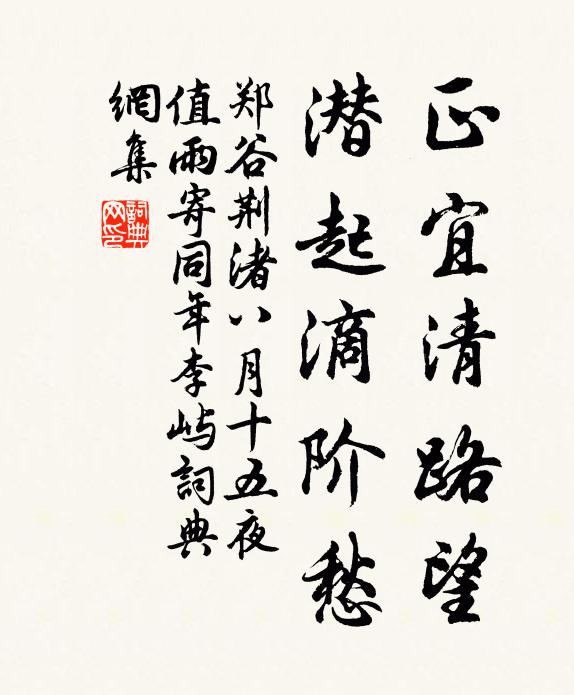 正宜清路望
潜起滴阶愁
郑谷荆渚八月十五夜
值雨寄同年李屿詞典
網集
詞典
网印